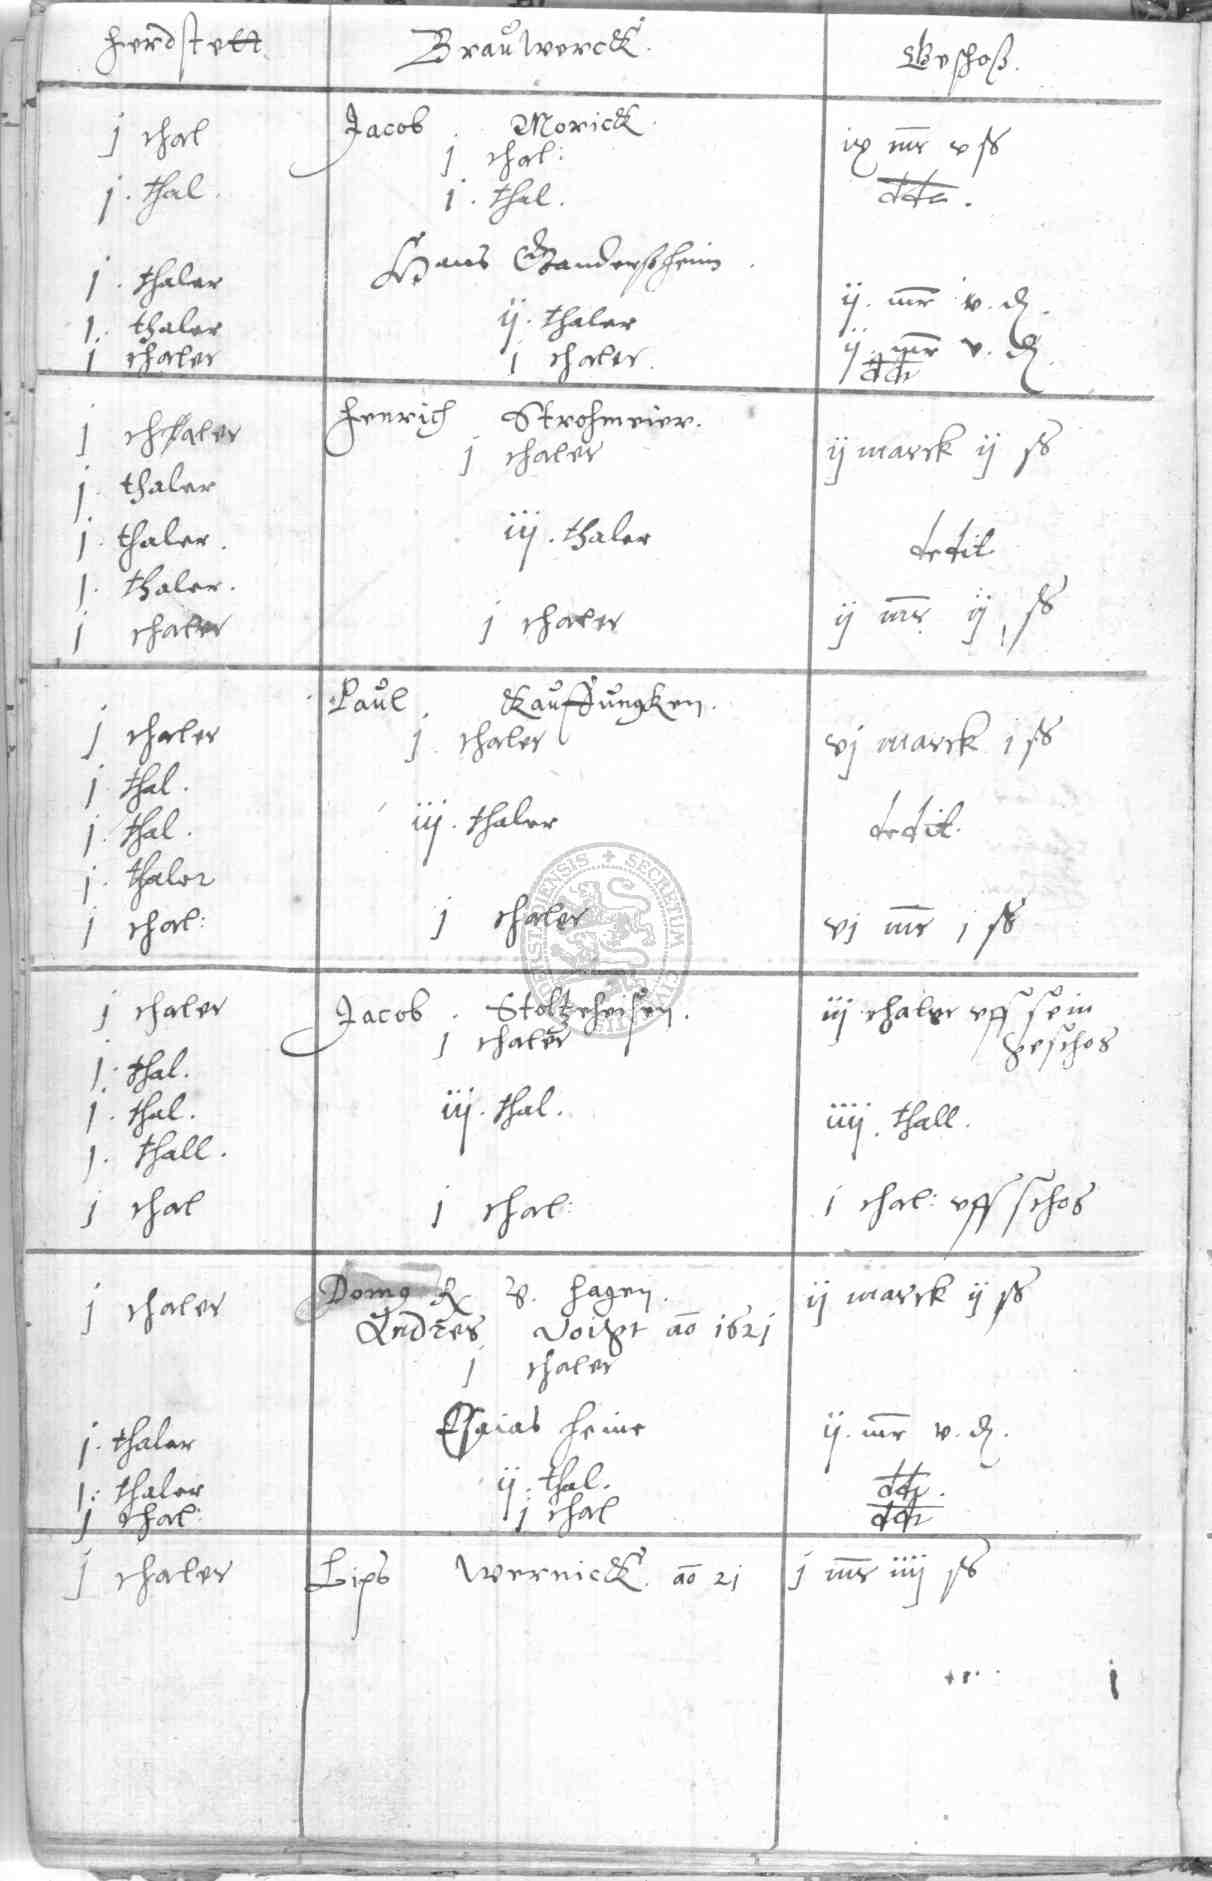 Herdstett. Brauwerck. Geschoß.
Jacob Morick
j thal j thal: ix mr v ß
j. thal. j. thal. ddt.
Hans Gandersheim.
j. thaler ij. mr v. d.
j. thaler ij. thaler
j thaler j thaler. ij. mr v. d
ddt
Henrich Strohmeier.
j thaler j thaler ij marck ij ß
j. thaler
j. thaler. iij. thaler dedit
j. thaler.
j thaler j thaler ij mr ij ß
Paul Kauffungken.
j thaler j thaler vj marck j ß
j. thal.
j. thal. iij. thaler dedit.
j. thaler
j thal: j thaler vj mr j ß
Jacob Stoltzeheisen. iij thaler uff sein
j thaler j thaler geschos
j. thal.
j. thal. iij. thal. iiij. thall.
j. thall.
j thal j thal: j thal: uff schos
j thaler v. Hagen. ij marck ij ß
Andres Voigt ao 1621
j thaler
Esaias Heine ij. mr v. d.
j. thaler
j. thaler ij. thal. ddt.
j thal: j thal ddt
j thaler Lips Wernick. ao 21 j mr iiij ß
SECRETUM CIVI